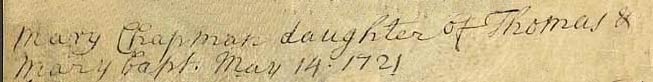 Mary Chapman daughter of Thomas &
Mary bapt. May 14. 1721